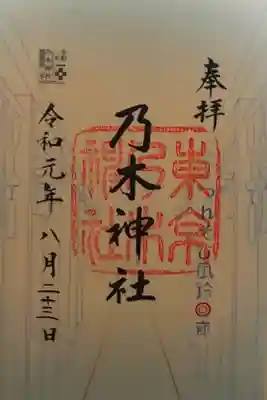 奉拝
乃木神社
東京乃木神社
令和元年八月二十三日